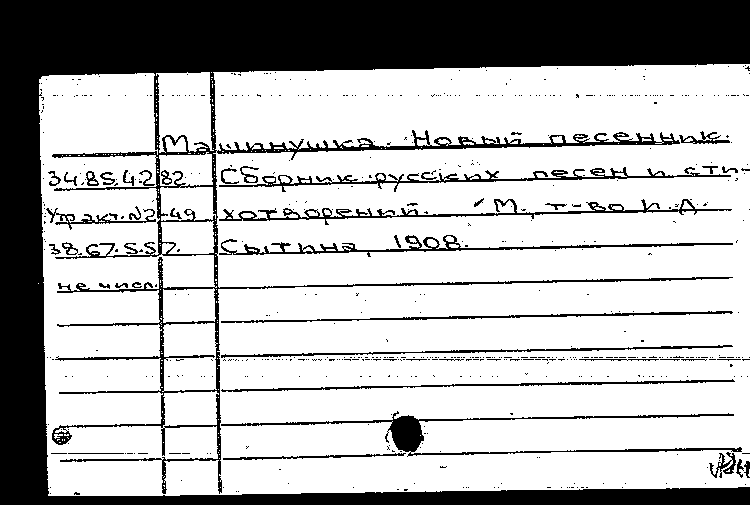 Машинушка. Новый песенник.
34.85.4.282 Сборник русских песен и сти-
Утр акт. №2-49 хотворений. М., т-во И.Д.
38.67.5.57. Сытина, 1908.
не числ.